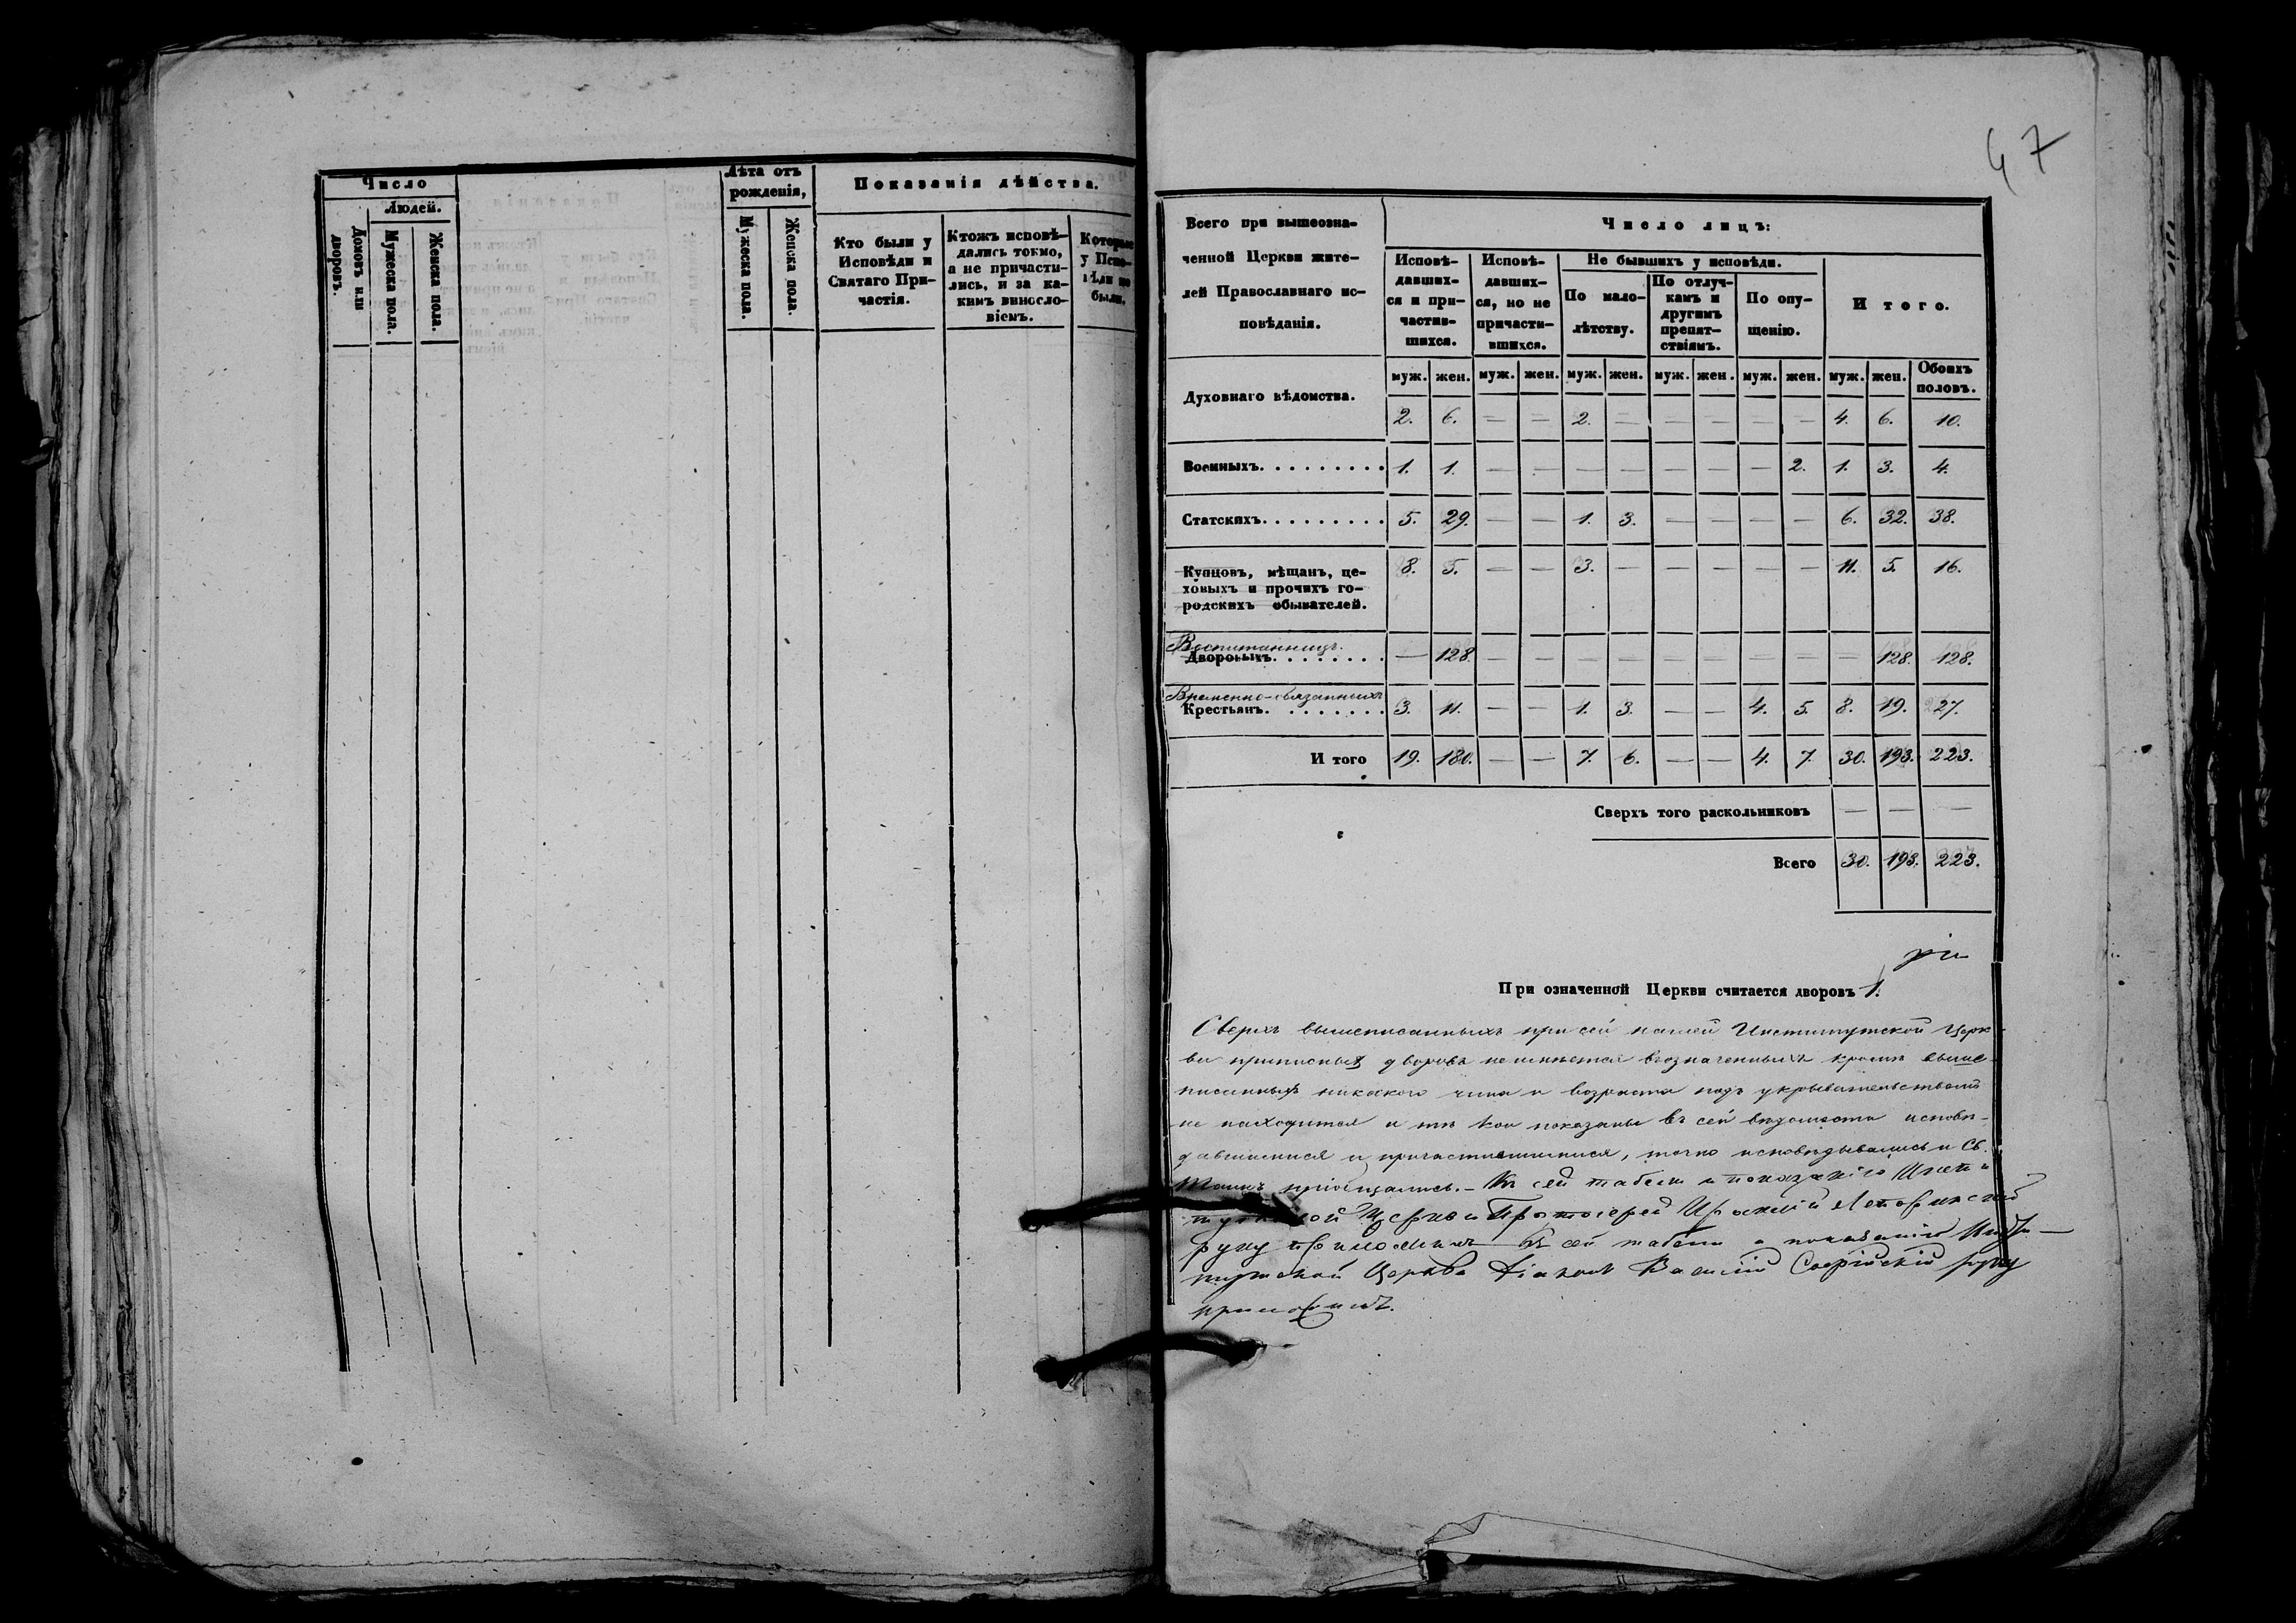 47
Число
Людей.
Домовъ или дворовъ.
Мужеска пола.
Женска пола.
Лѣта отъ рожденія,
Мужеска пола.
Женска пола.
Показанія дѣйства.
Кто были у Исповѣди и Святаго Причастія.
Ктожъ исповѣдались токмо, а не причастились, и за какимъ винословіемъ.
Которые у Исповѣди не были.
Всего при вышеозначенной Церкви жителей Православнаго исповѣданія.
Число лицъ:
Исповѣдавшихся и причастившихся.
Исповѣдавшихся, но не причастившихся.
Не бывшихъ у исповѣди.
По малолѣтству.
По отлучкамъ и другимъ препятствіямъ.
По опущенію.
Итого.
муж. жен. муж. жен. муж. жен. муж. жен. муж. жен. муж. жен. Обоихъ половъ.
Духовнаго вѣдомства. 2. 6. — — 2. — — — — — 4. 6. 10.
Военныхъ. 1. 1. — — — — — — — 2. 1. 3. 4.
Статскихъ. 5. 29. — — 1. 3. — — — — 6. 32. 38.
Купцовъ, мѣщанъ, цеховыхъ и прочихъ городскихъ обывателей. 8. 5. — — 3. — — — — — 11. 5. 16.
Воспитанницъ.
Дворовыхъ. — 128. — — — — — — — — — 128. 128.
Временно-обязанныхъ
Крестьянъ. 3. 11. — — 1. 3. — — 4. 5. 8. 19. 27.
И того 19. 180. — — 7. 6. — — 4. 7. 30. 193. 223.
Сверхъ того раскольниковъ — — —
Всего 30. 193. 223.
При означенной Церкви считается дворовъ 1.
Сверхъ вышеписанныхъ при сей нашей Институтской Церк-
ви приписныхъ дворовъ не имѣется въ означенныхъ кромѣ выше-
писанныхъ никакого чина и возраста подъ укрывательствомъ
не находится и тѣ кои показаны въ сей вѣдомости исповѣ-
давшимися и причастившимися, точно исповѣдывались и Св.
Таинъ пріобщались. – Къ сей табели и показанію Инсти-
Церкви Протоіерей
руку приложилъ Къ сей табели и показанію Инсти-
тутской Церкви Діаконъ Василій Софійскій руку
приложилъ.